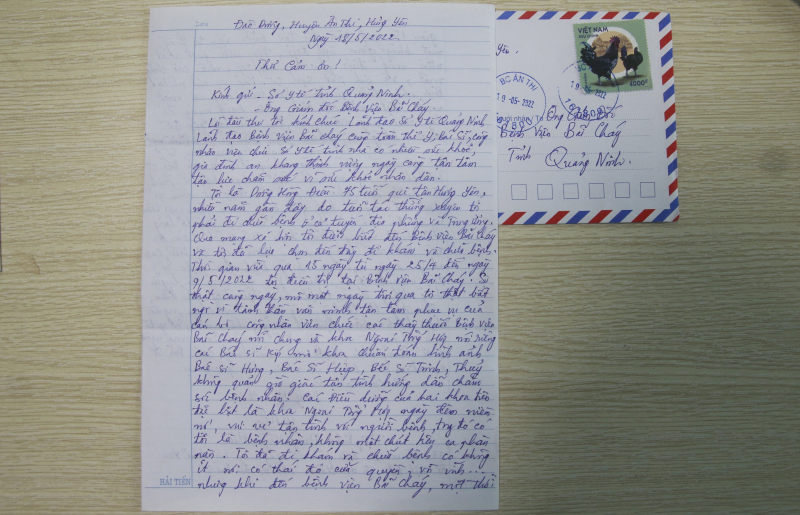 Đào Dương, Huyện Ân Thi, Hưng Yên
Ngày 18/5/2022
Thư Cảm ơn!
Kính gửi - Sở Y tế Tỉnh Quảng Ninh.
- Ông Giám đốc Bệnh Viện Bãi Cháy
Lời đầu thư tôi kính chúc Lãnh đạo Sở Y tế Quảng Ninh
Lãnh đạo Bệnh Viện Bãi Cháy cùng toàn thể Y, Bác Sĩ, công
nhân viên chức Sở Y tế tỉnh nhà có nhiều sức khỏe,
gia đình an khang thịnh vượng ngày càng tận tâm
tận lực chăm sóc vì sức khỏe nhân dân.
Tôi là Dương Hồng 75 tuổi quê tận Hưng Yên,
nhiều năm gần đây do tuổi tác thường xuyên tôi
phải đi chữa bệnh ở cả tuyến địa phương và Trung ương.
Qua mạng xã hội tôi được biết đến Bệnh Viện Bãi Cháy
và tôi đã lựa chọn đến đây để khám và chữa bệnh.
Thời gian vừa qua 15 ngày từ ngày 25/4 đến ngày
9/5/2022 tôi điều trị tại Bệnh viện Bãi Cháy. Sự
thật càng ngày, mỗi một ngày trôi qua tôi thật bất
ngờ vì tinh thần văn minh tận tâm phục vụ của
cán bộ công nhân viên chức các thầy thuốc Bệnh Viện
Bãi Cháy nói chung và khoa Ngoại nói riêng
các Bác sĩ khoa chuẩn đoán hình ảnh
Bác sĩ Hùng, Bác Sĩ Hiệp, Bác Sĩ Trình, Thủy
không quản giờ giấc tận tình hướng dẫn chăm
sóc bệnh nhân. Các Điều dưỡng của hai khoa trên
đặc biệt là khoa Ngoại ngày đêm niềm
nở, vui vẻ tận tình với người bệnh, trong đó có
tôi là bệnh nhân, không một chút kêu ca phàn
nàn. Tôi đã đi khám và chữa bệnh có không
ít nơi có thái độ cửa quyền, vô ...
nhưng khi đến bệnh viện Bãi Cháy, một thái
HẢI TIẾN
Yên.
VIỆT NAM
4000đ
BC ÂN THI
19-05-2022
Ông Giám Đốc
Bệnh Viện Bãi Cháy
Tỉnh Quảng Ninh.